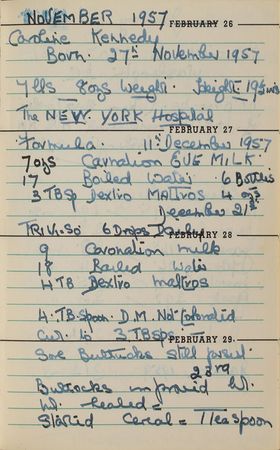 NOVEMBER 1957 FEBRUARY 26
Caroline Kennedy
Born. 27th November 1957
7 lbs 8 ozs Weight. Height 19½ ins
The NEW YORK Hospital
FEBRUARY 27
Formula. 11th December 1957
7 ozs Carnation EVE MILK.
17 " Boiled Water 6 Bottles
3 TBSp Dextro Maltros 4 ozs
December 21st
TRIVI-SO 6 Drops Daily
FEBRUARY 28
9 Caronation milk
18 Boiled Water
4 TB Dextro maltros
4. TB. spoon. D. M. Not tolorated
Cut to 3 TBSps.
FEBRUARY 29
Sore Buttucks still
23rd
Buttocks improvid
healed =
Started Cereal = 1 Teaspoon